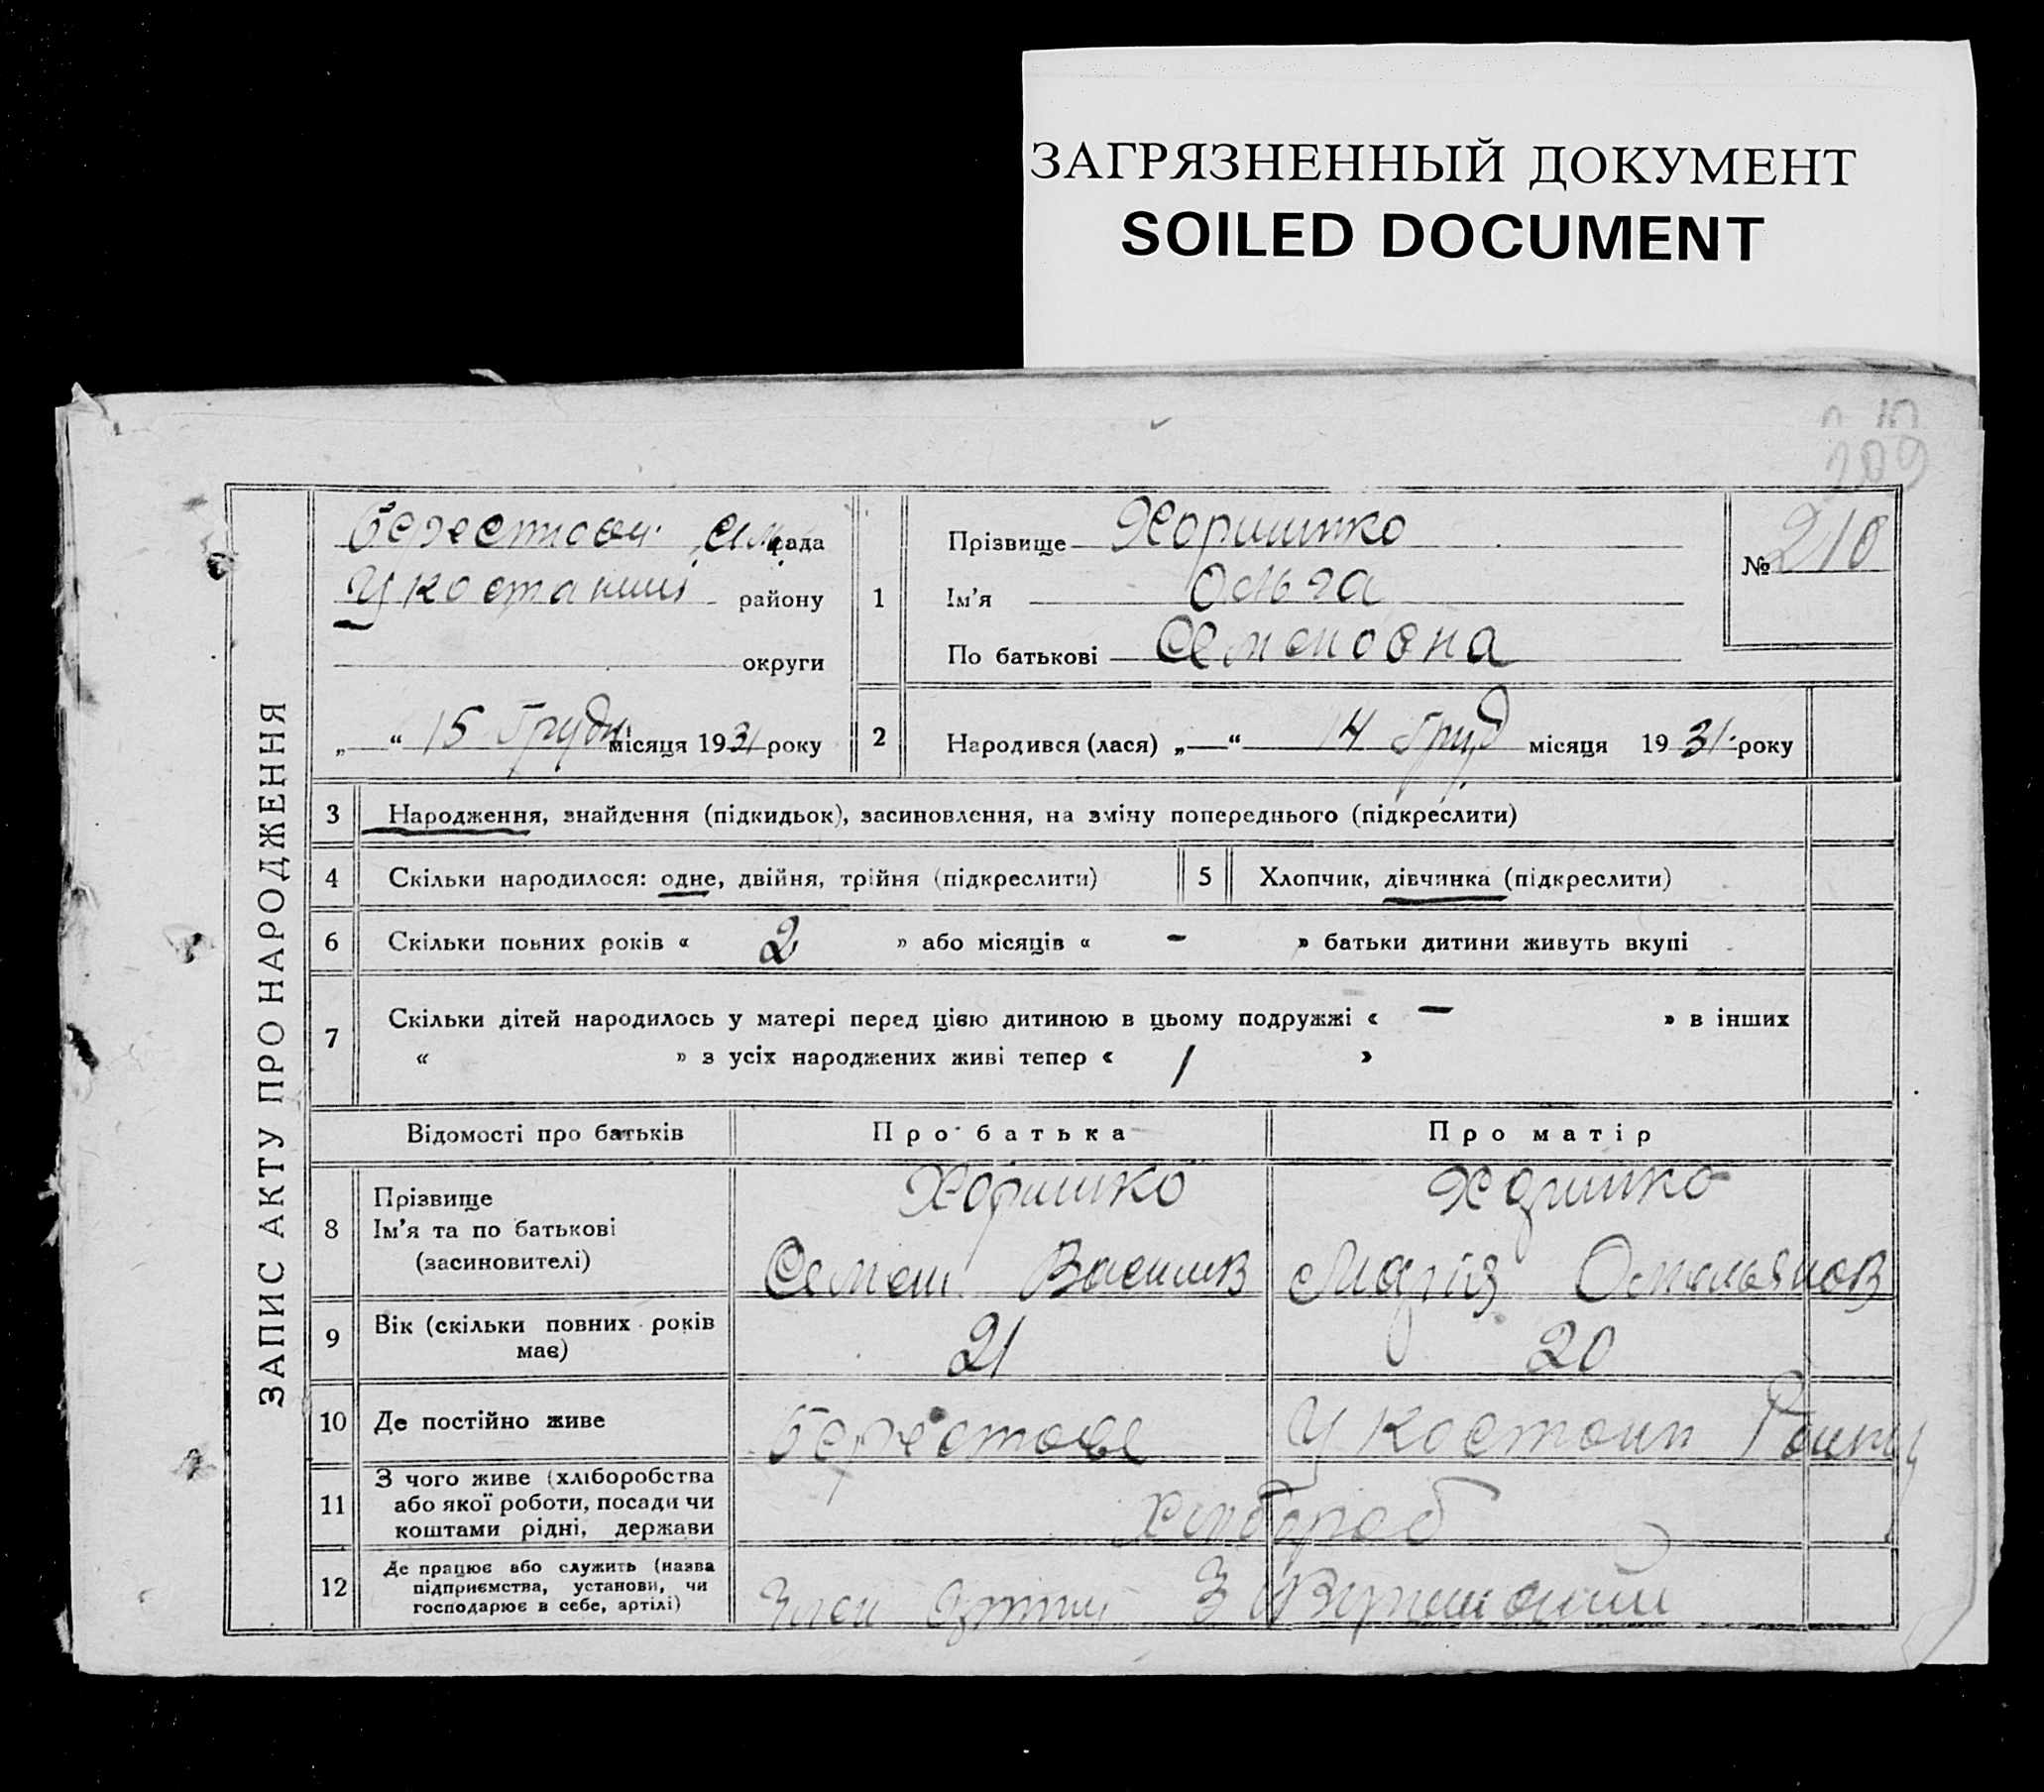 ЗАГРЯЗНЕННЫЙ ДОКУМЕНТ
SOILED DOCUMENT
209
ЗАПИС АКТУ ПРО НАРОДЖЕННЯ
Берестов. сільрада
У Костянт району
округи
„ “ 15 Грудн місяця 1931 року
1
Прізвище Хоришко
Ім'я Ольга
По батькові Семеновна
№ 210
2 Народився (лася) „ “ 14 Груд місяця 1931 року
3 Народження, знайдення (підкидьок), засиновлення, на зміну попереднього (підкреслити)
4 Скільки народилося: одне, двійня, трійня (підкреслити) 5 Хлопчик, дівчинка (підкреслити)
6 Скільки повних років « 2 » або місяців « - » батьки дитини живуть вкупі
7 Скільки дітей народилось у матері перед цією дитиною в цьому подружжі « — » в інших
« » з усіх народжених живі тепер « 1 »
Відомості про батьків Про батька Про матір
8 Прізвище
Ім'я та по батькові
(засиновителі)
Хоришко
Семен Василів
Хоришко
Марія Омельянов
9 Вік (скільки повних років
має)
21 20
10 Де постійно живе Берестове У Костянт
11 З чого живе (хліборобства
або якої роботи, посади чи
коштами рідні, держави
Хлібороб
12 Де працює або служить (назва
підприємства, установи, чи
господарює в себе, артілі)
Член Артіли